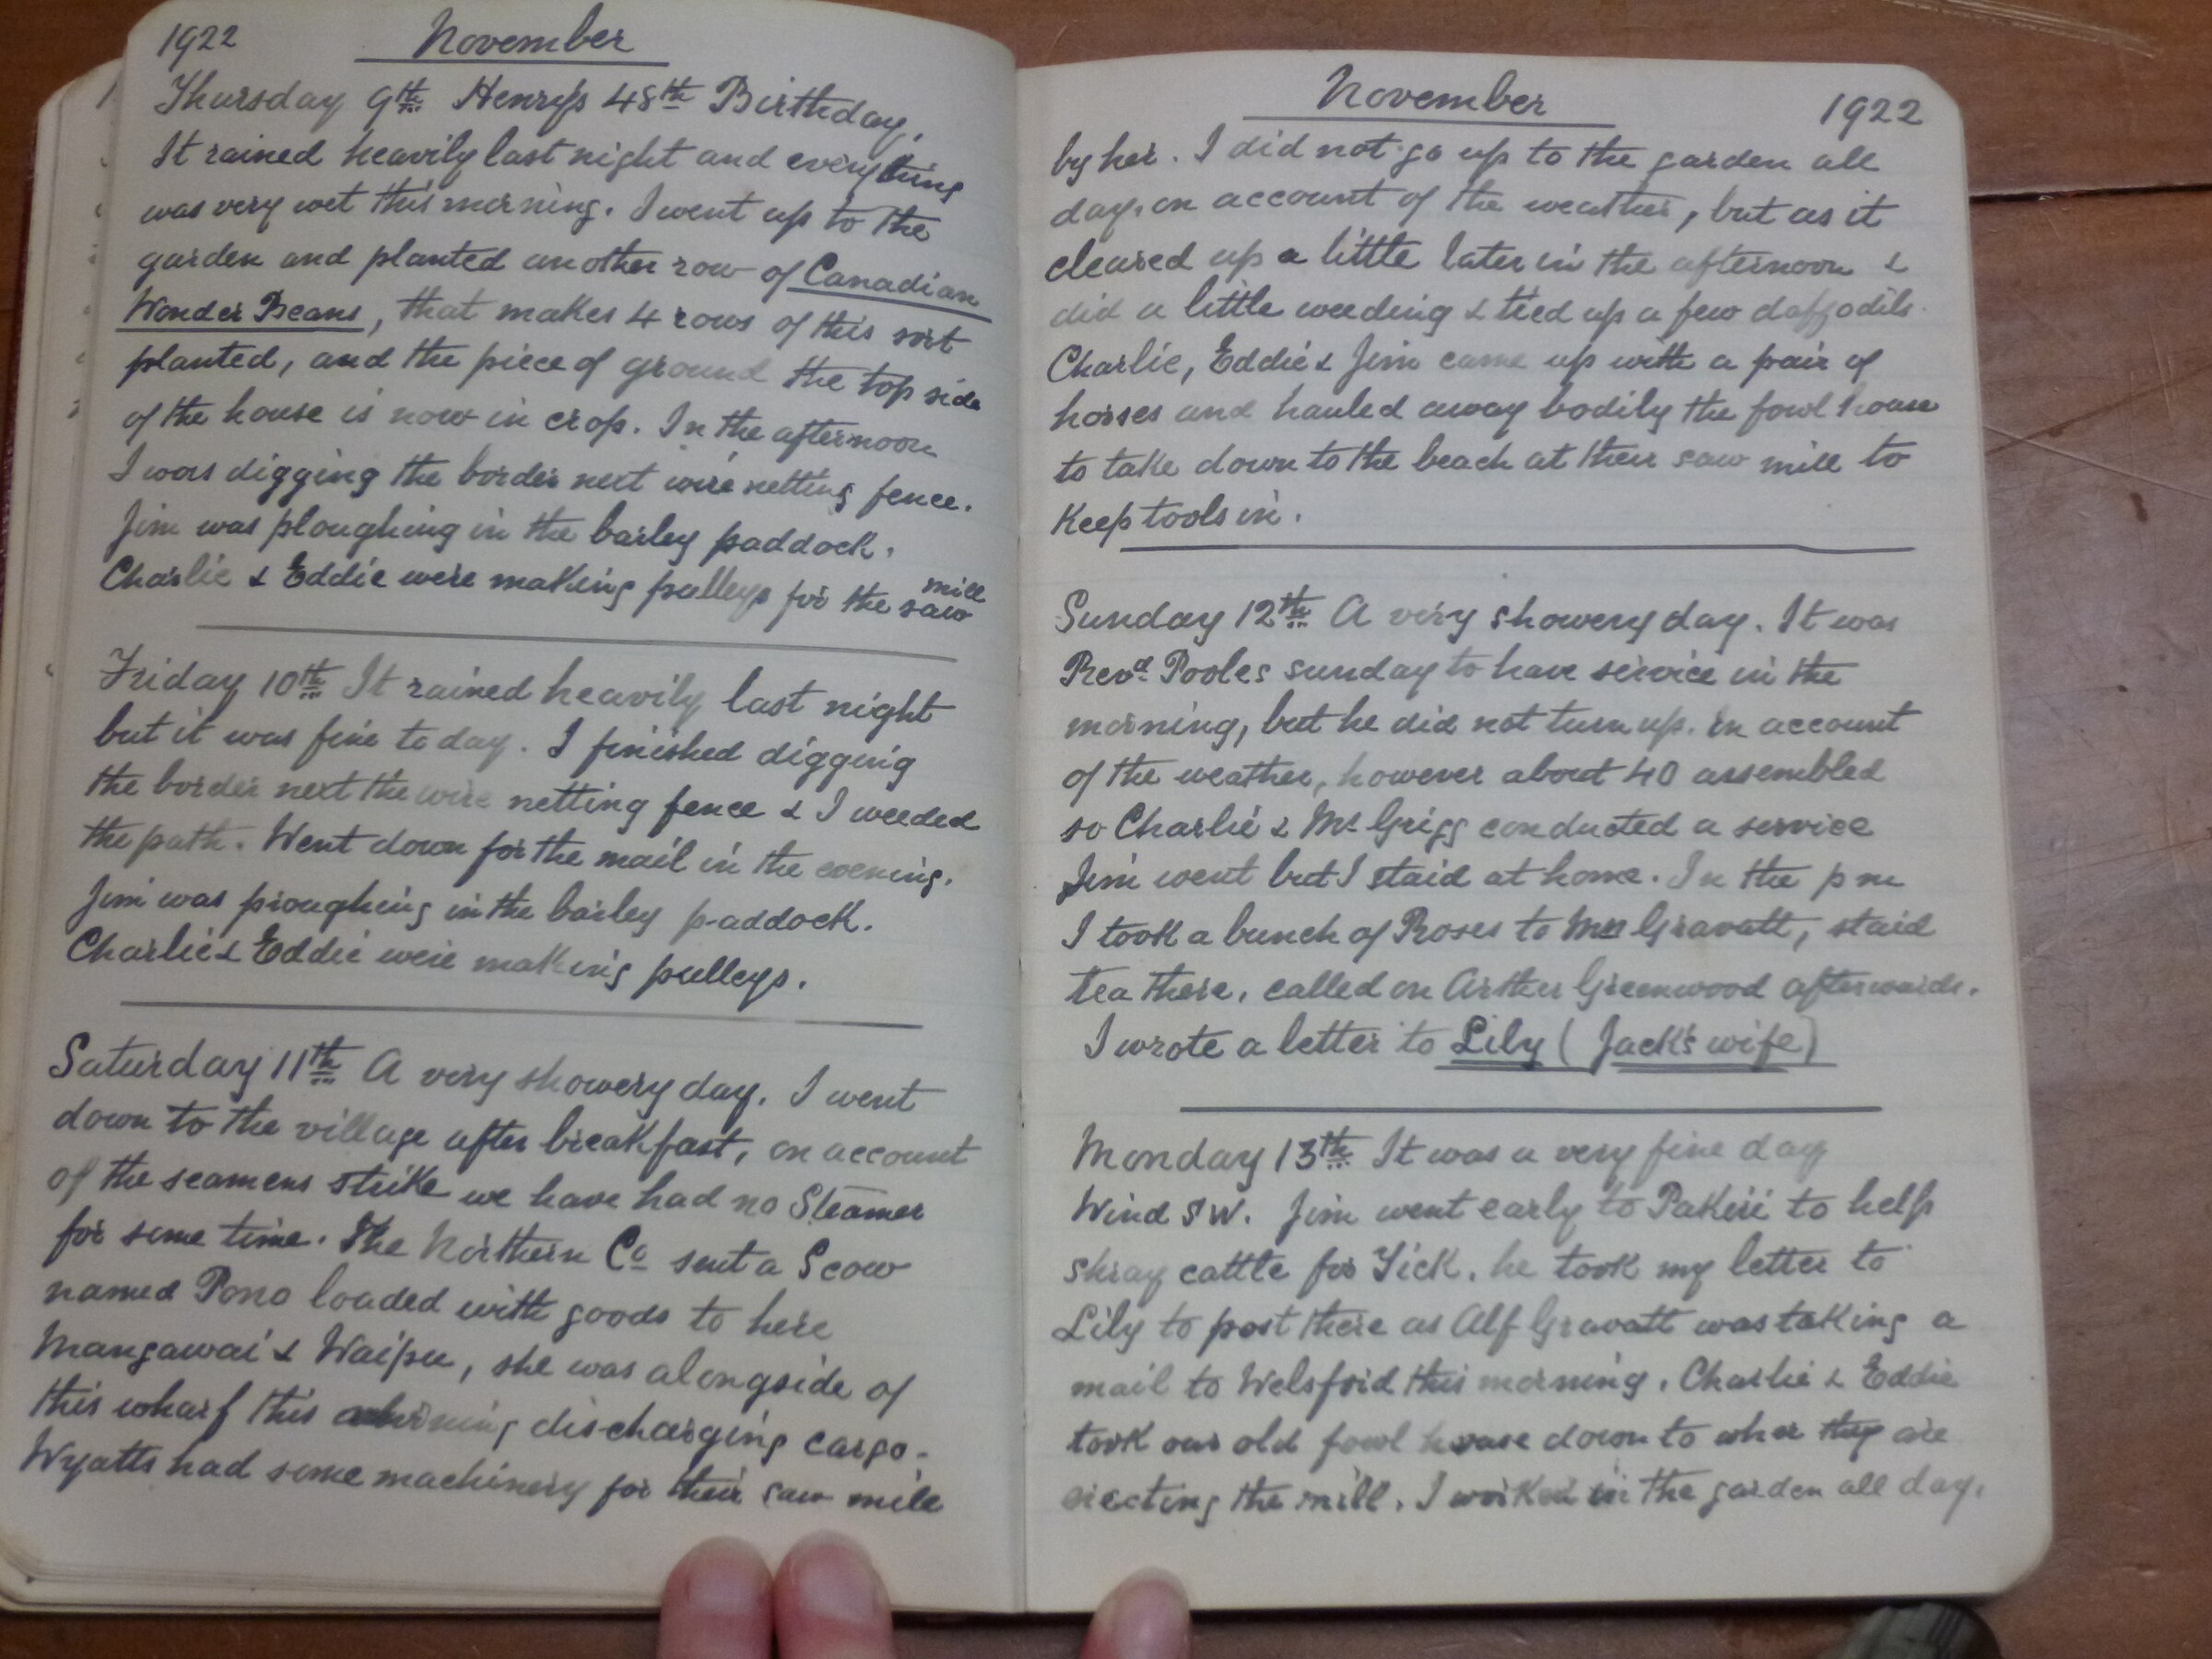 1922 November
Thursday 9th Henry's 48th Birthday.
It rained heavily last night and everything
was very wet this morning. I went up to the
garden and planted another row of Canadian
Wonder Beans, that makes 4 rows of this sort
planted, and the piece of ground the top side
of the house is now in crop. In the afternoon
I was digging the border next wire netting fence.
Jim was ploughing in the barley paddock.
Charlie & Eddie were making pulleys for the saw mill
Friday 10th It rained heavily last night
but it was fine today. I finished digging
the border next the wire netting fence & I weeded
the path. Went down for the mail in the evening.
Jim was ploughing in the barley paddock.
Charlie & Eddie were making pulleys.
Saturday 11th A very showery day. I went
down to the village after breakfast, on account
of the seamens strike we have had no Steamer
for some time. The Northern Co sent a Scow
named Pono loaded with goods to here
Mangawai & Waipu, she was alongside of
this wharf this morning discharging cargo.
Wyatts had some machinery for their saw mill
November 1922
by her. I did not go up to the garden all
day, on account of the weather, but as it
cleared up a little later in the afternoon I
did a little weeding & tied up a few daffodils.
Charlie, Eddie & Jim came up with a pair of
horses and hauled away bodily the fowl house
to take down to the beach at their saw mill to
Keep tools in.
Sunday 12th A very showery day. It was
Revd Pooles sunday to have service in the
morning, but he did not turn up. on account
of the weather, however about 40 assembled
so Charlie & Mr Grigg conducted a service
Jim went but I staid at home. In the pm
I took a bunch of Roses to Mrs Gravatt, staid
tea there, called on Arther Greenwood afterwards.
I wrote a letter to Lily (Jack's wife)
Monday 13th It was a very fine day
Wind S W. Jim went early to Pakiri to help
cattle for he took my letter to
Lily to post there as Alf Gravatt was taking a
mail to Welsford this morning. Charlie & Eddie
took our old fowl house down to wher they are
erecting the mill. I worked in the garden all day.